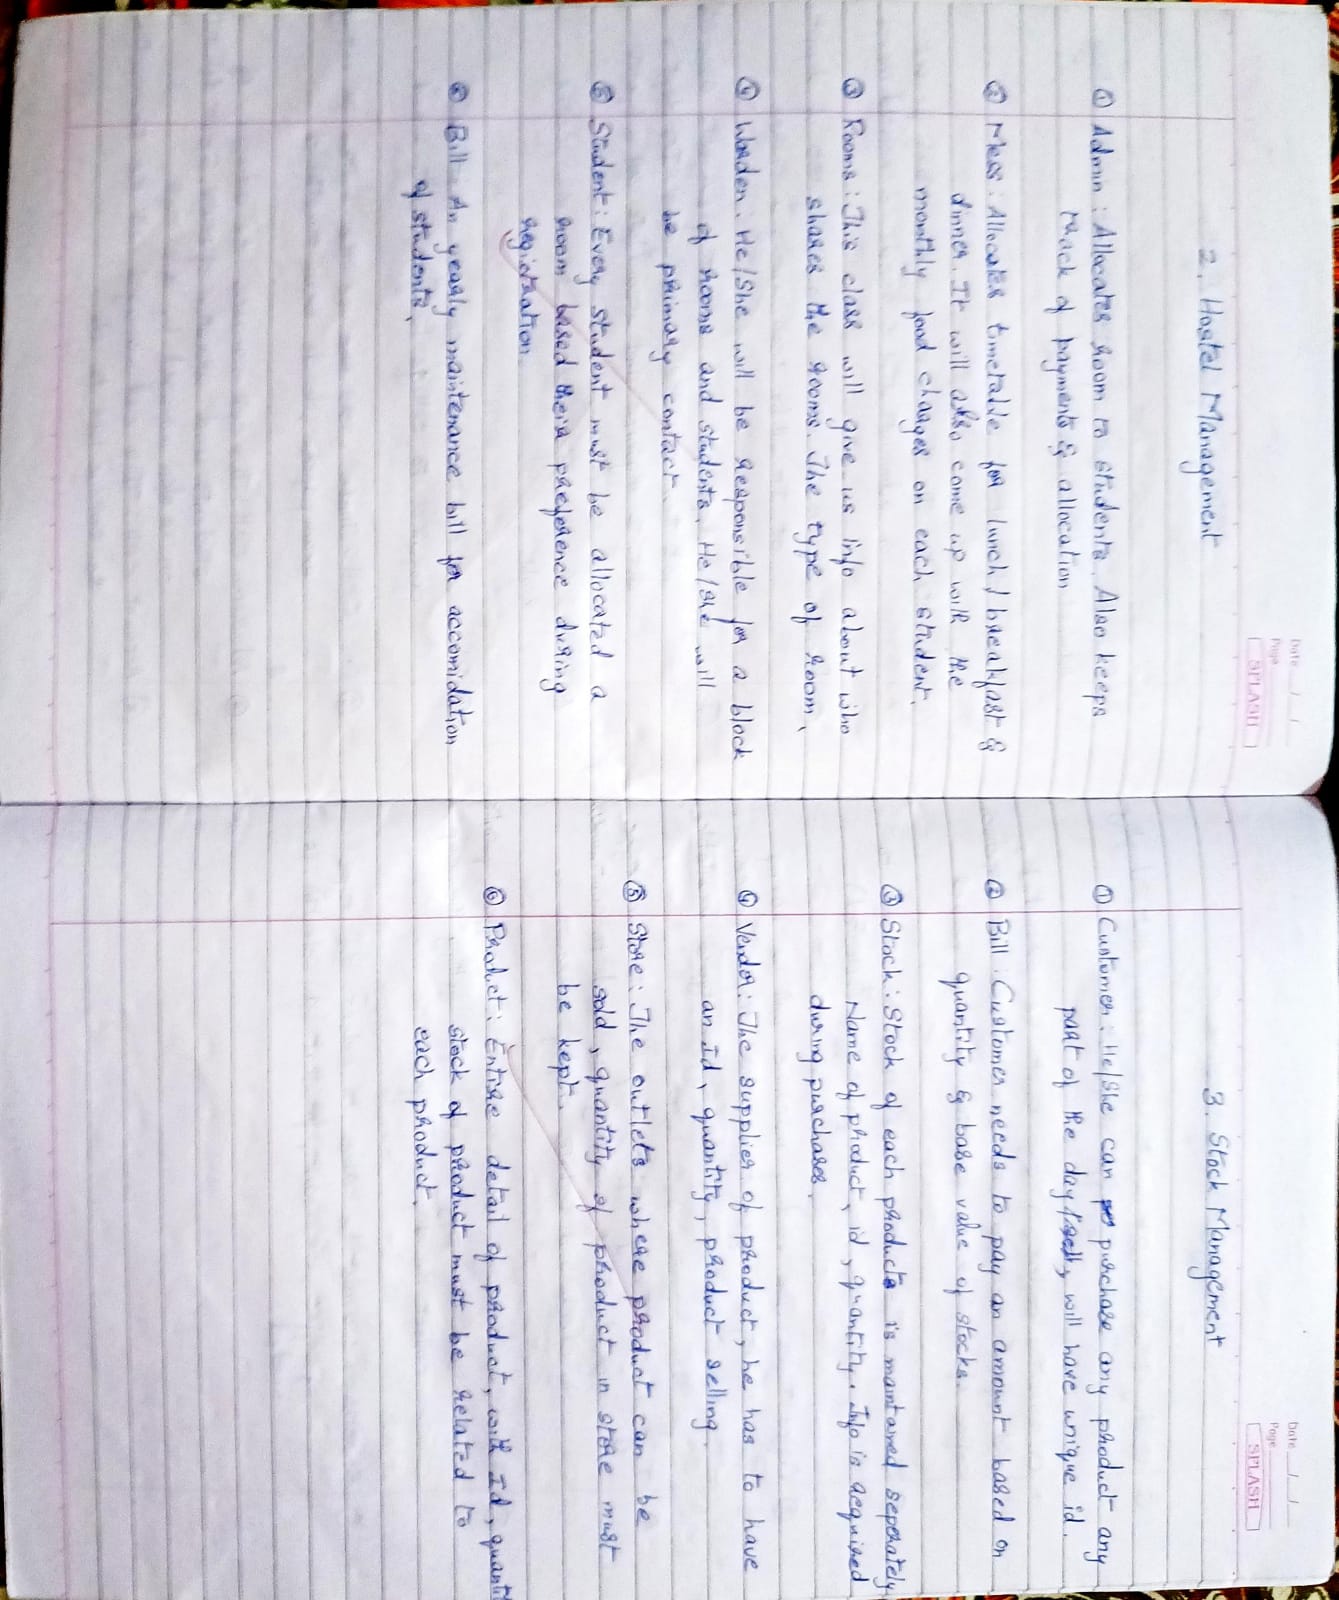 Date __/__/__
Page ____
SPLASH
2. Hostel Management
① Admin : Allocates room to students. Also keeps
track of payments & allocation
② Mess : Allocates timetable for lunch / breakfast &
dinner. It will also come up with the
monthly food charges on each student.
③ Rooms : This class will give us info about who
shares the rooms. The type of room.
④ Warden : He/She will be responsible for a block
of rooms and students. He/she will
be primary contact.
⑤ Student : Every student must be allocated a
room based their preference during
registration.
Bill : An yearly maintenance bill for accomidation
of students.
Date __/__/__
Page ____
SPLASH
3. Stock Management
① Customer : He/She can purchase any product any
part of the day, will have unique id.
② Bill : Customer needs to pay an amount based on
quantity & base value of stocks.
③ Stock : Stock of each products is maintained seperately
Name of product, id, quantity. Info is acquired
during purchases.
④ Vendor : The supplier of product, he has to have
an Id, quantity, product selling.
⑤ Store : The outlets where product can be
sold, quantity of product in store must
be kept.
⑥ Product : Entire detail of product, with Id, quantit
stock of product must be related to
each product.